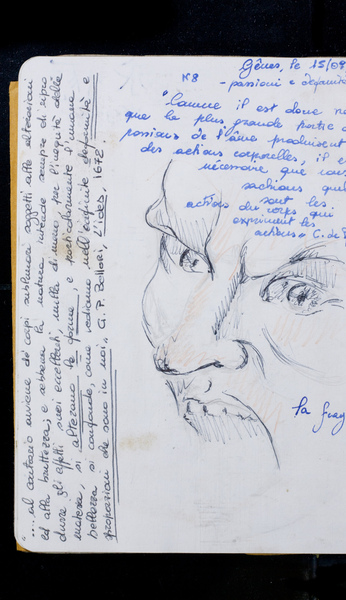 Gênes, le 15/09
N8
- passioni e deformità
"Comme il est donc
que la plus grande partie d
passions de l'âme produisent
des actions corporelles, il e
nécessaire que
sachions quel
sont les
actions du corps qui
expriment les
actions" C. de
la frag
"....al contrario avviene de' corpi sublunari soggetti alle alterationi
ed alla bruttezza; e sebbene la natura intende sempre di
durre gli effetti suoi eccellenti, nulla di meno per l'inequalità della
materia, si alterano le forme, e particolarmente l'umana
bellezza si confonde, come vediamo nell'infinite deformità e
sproporzioni che sono in noi." G. P. Bellori, L'idea, 1672.